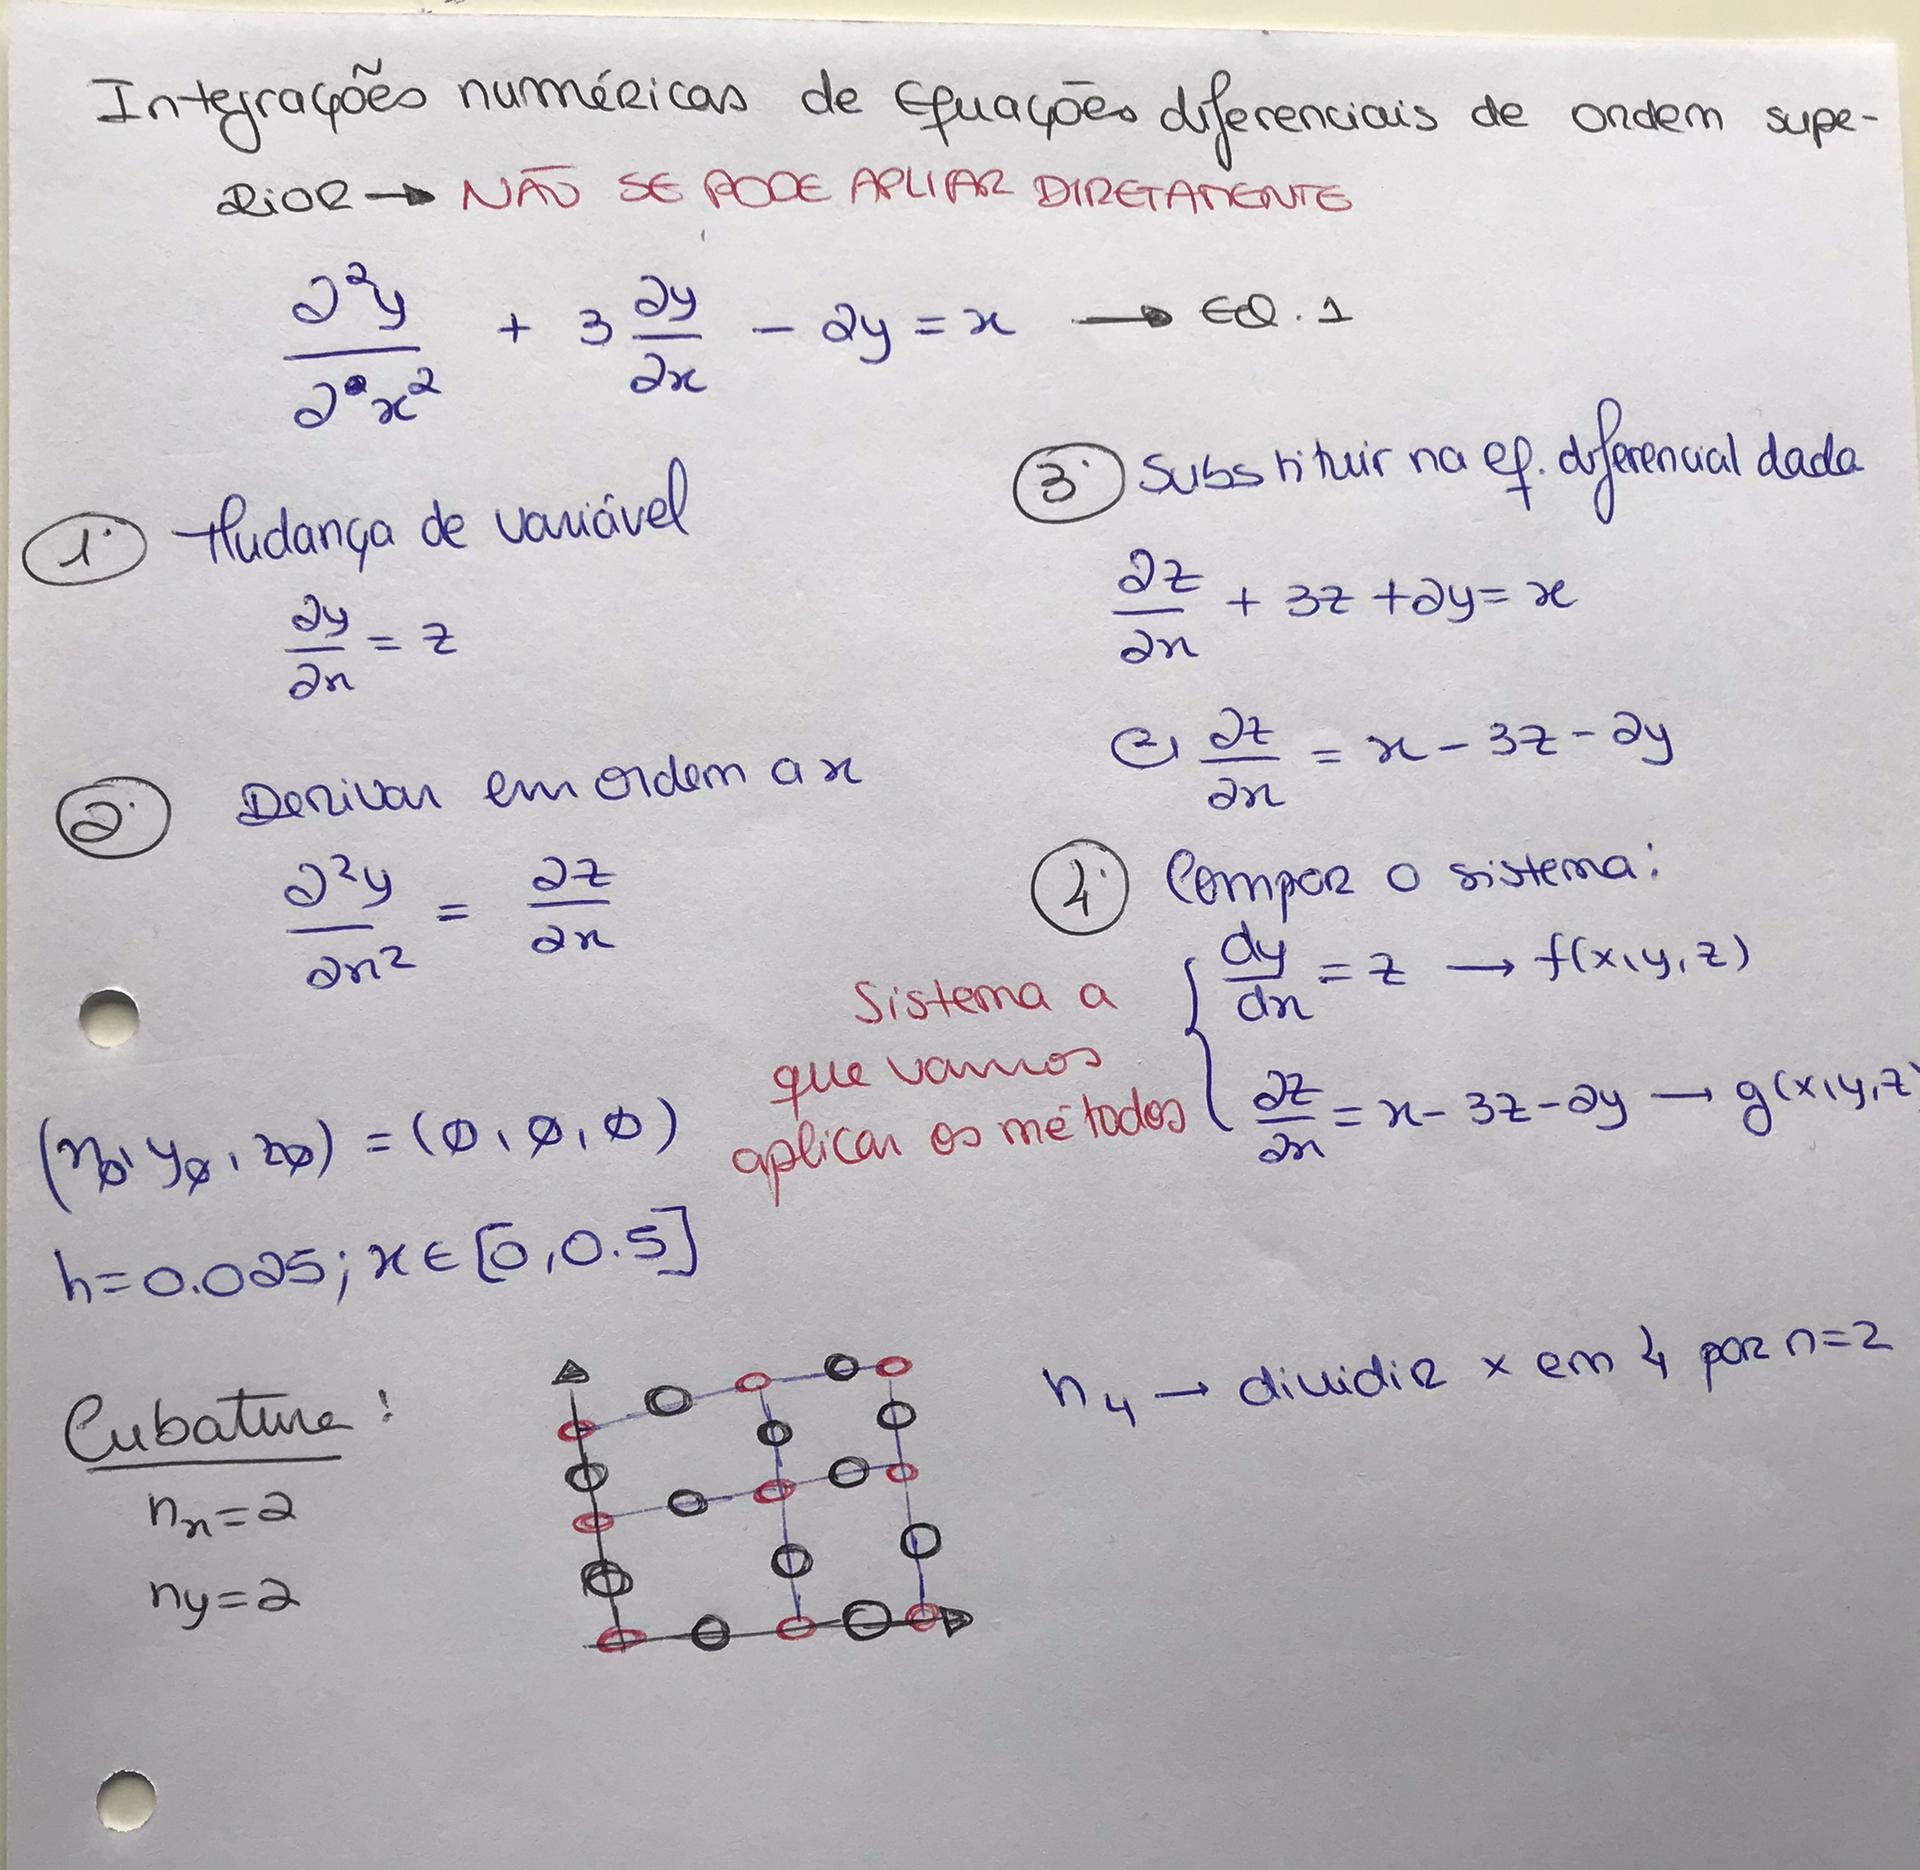 Integrações numéricas de Equações diferenciais de ordem supe-
rior → NÃO SE PODE APLIAR DIRETAMENTE
∂²y/∂x² + 3 ∂y/∂x - 2y = x → EQ. 1
1. Mudança de variável
∂y/∂x = z
2. Derivar em ordem a x
∂²y/∂x² = ∂z/∂x
3. Substituir na eq. diferencial dada
∂z/∂x + 3z + 2y = x
(=) ∂z/∂x = x - 3z - 2y
4. Compor o sistema:
dy/dx = z → f(x,y,z)
∂z/∂x = x - 3z - 2y → g(x,y,z)
Sistema a
que vamos
aplicar os métodos
(x0, y0, z0) = (0, 0, 0)
h=0.025; x ∈ [0, 0.5]
Cubatura:
nx=2
ny=2
h4 → dividir x em 4 por n=2